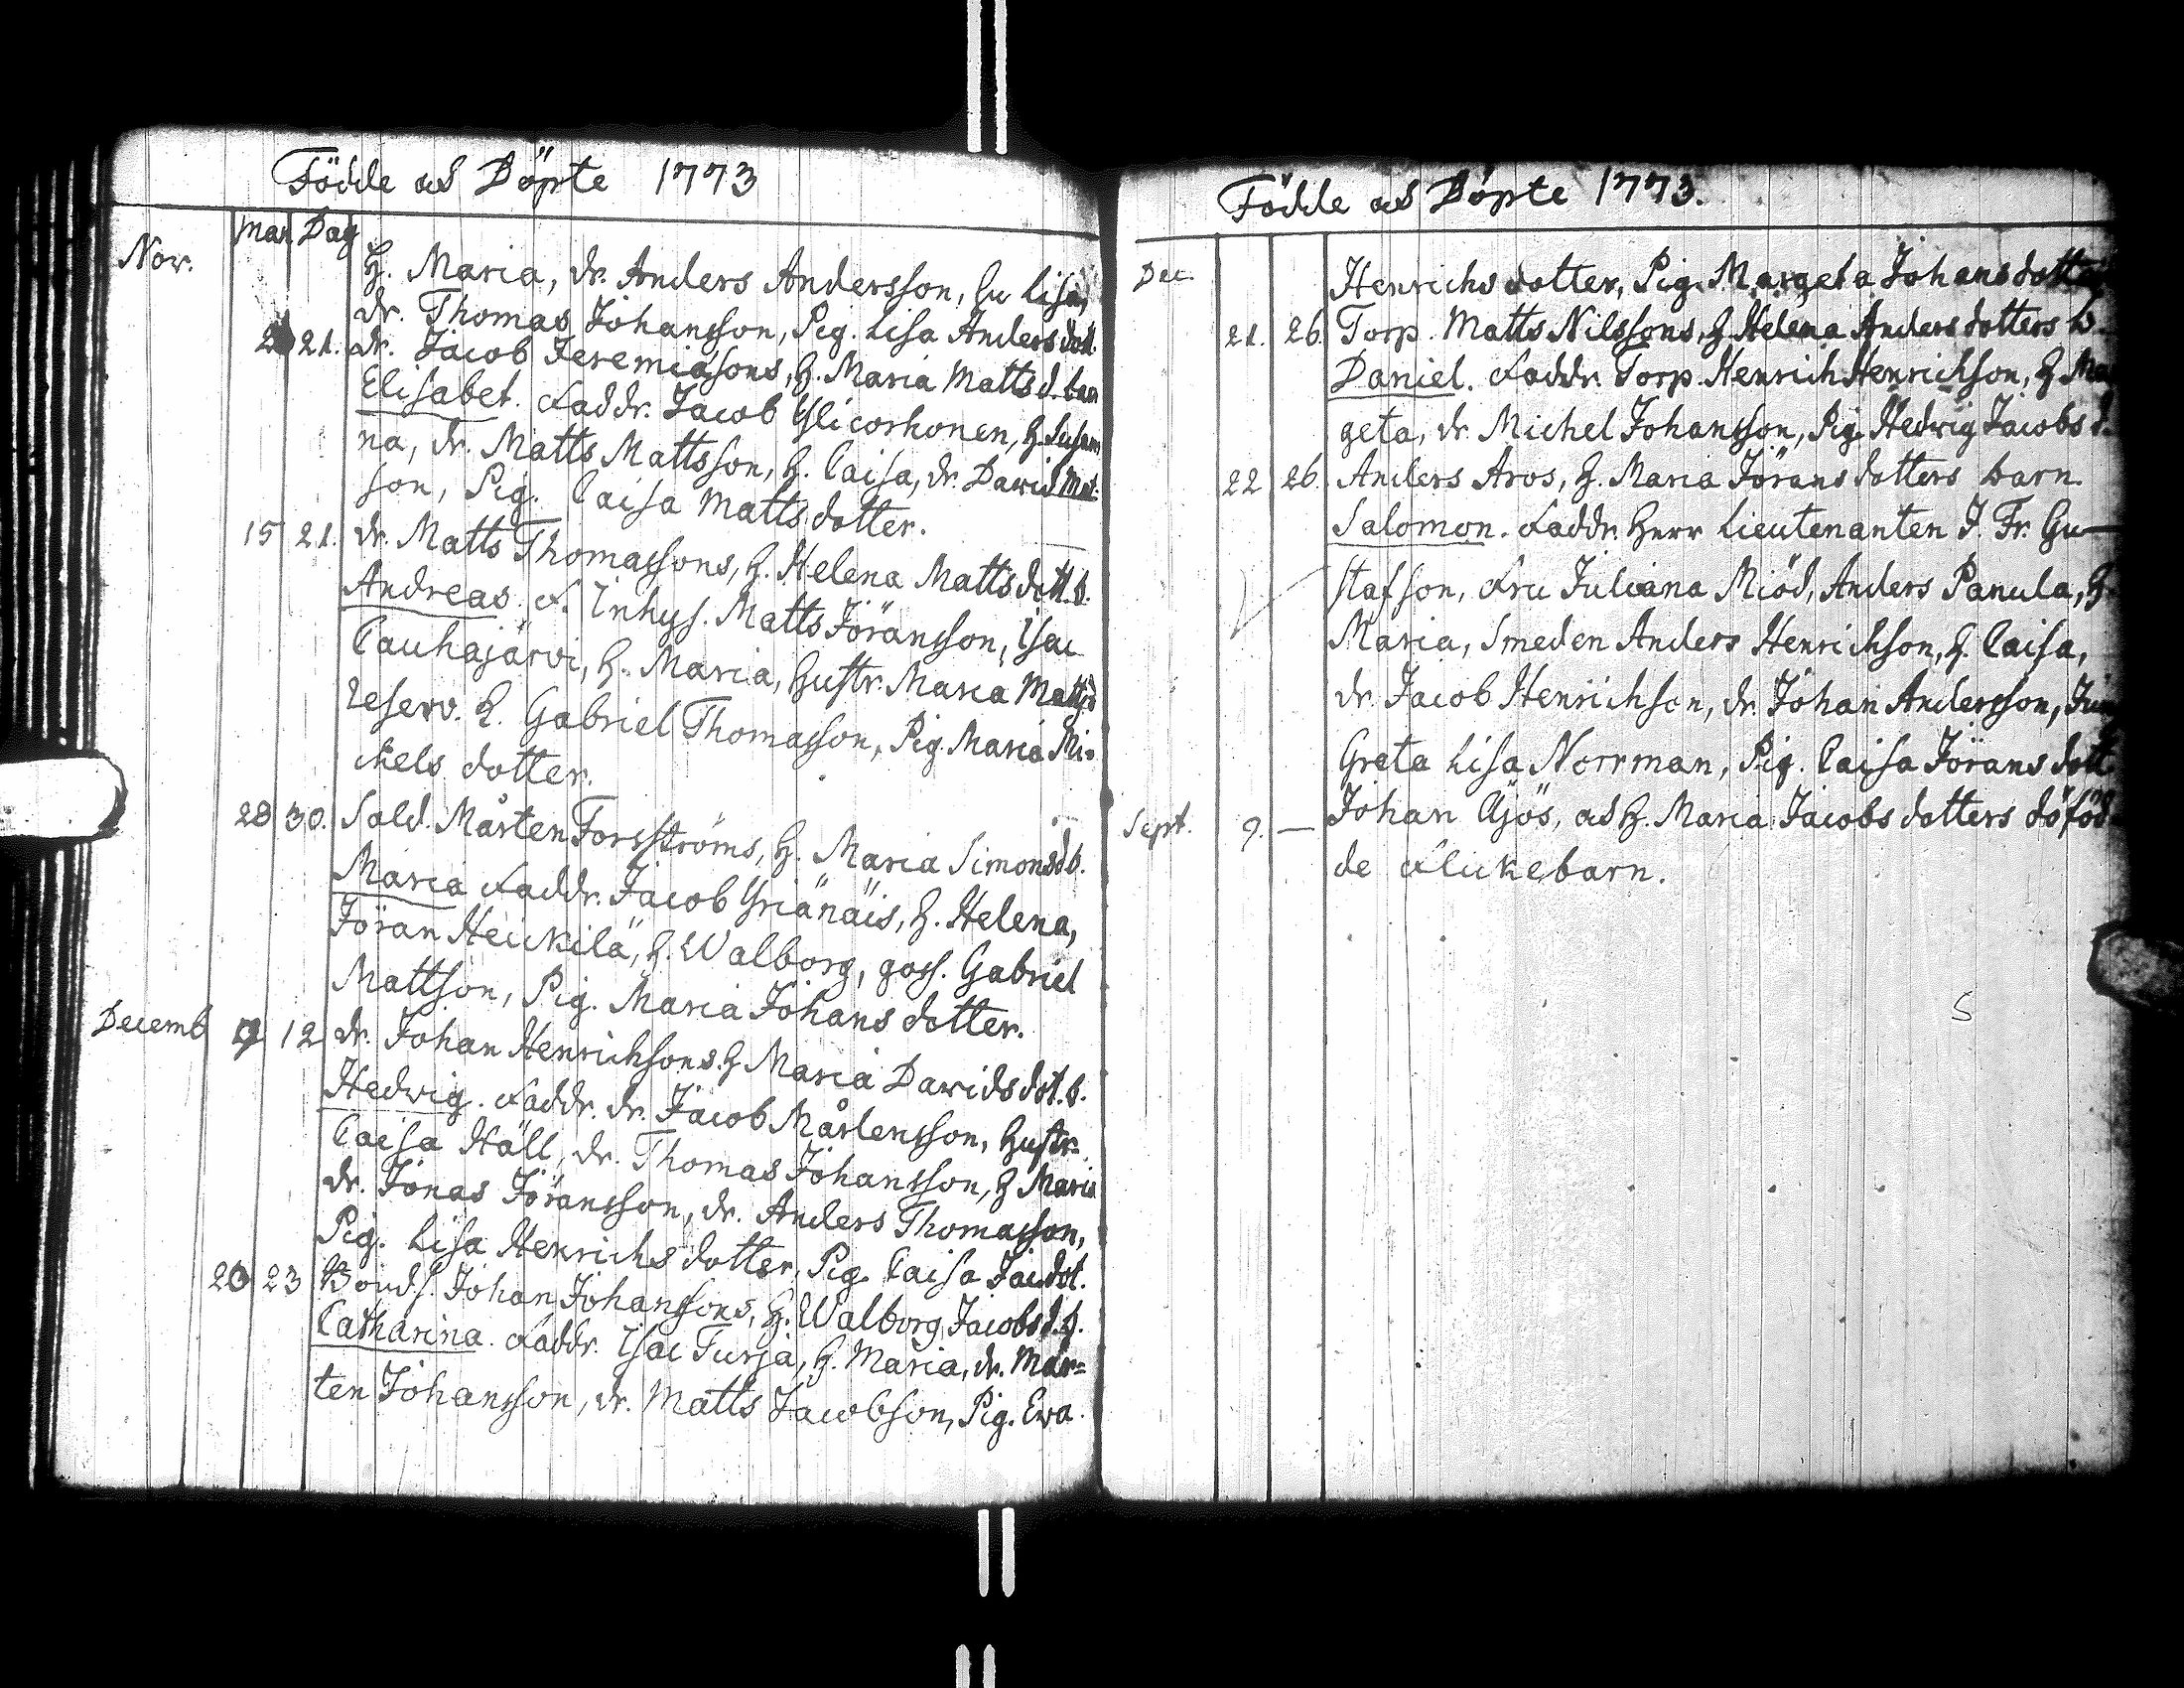 Födde och Döpte 1773
Mån Dag
Nov. H. Maria, dr. Anders Andersson, Hu Lisa,
dr. Thomas Johansson, Pig. Lisa Anders dott.
21. dr. Jacob Jeremiæsons, H. Maria Matts d. barn
Elisabet. Faddr. Jacob Ylicorhonen, H. Susan
na, dr. Matts Mattsson, H. Caisa, dr. David Mat-
son, Pig. Caisa Mattsdotter.
15 21. dr. Matts Thomassons, H. Helena Matts dott. b.
Andreas. F. Inhys. Matts Jöransson, Isac
Cauhajärvi, H. Maria, Hustr. Maria Matsd
reserv. K. Gabriel Thomasson, Pig. Maria Mi-
chels dotter.
28 30. Sold. Mårten Forsströms, H. Maria Simonsd b.
Maria Faddr. Jacob Yrjänäis, H. Helena,
Jöran Heickilä, H. Walborg, goss. Gabriel
Mattson, Pig. Maria Johans dotter.
Decemb 9 12 dr. Johan Henrichsons H Maria Davids dot. b.
Hedwig. Faddr. dr. Jacob Mårtensson, Hustr.
Caisa Häll, dr. Thomas Johansson, H Maria
dr. Jonas Jöransson, dr. Anders Thomasson,
Pig. Lisa Henrichs dotter, Pig. Caisa Jac.dot.
20 23 Bonds. Johan Johanssons, H. Walborg Jacobs d. b.
Catharina. Faddr. Isac Turja, H. Maria, dr. Mår-
ten Johansson, dr. Matts Jacobson, Pig. Ewa
Födde och Döpte 1773.
Dec. Henrichs dotter, Pig. Margeta Johans dotter
21. 26. Torp. Matts Nilssons, H Helena Anders dotters b.
Daniel. Faddr. Torp. Henrich Henrichson, H Mar
geta, dr. Michel Johansson, Pig. Hedwig Jacobs d.
22 26. Anders Aros, H. Maria Jörans dotters barn
Salomon. Faddr. Herr Lieutenanten J. Fr. Gu-
stafson, Fru Juliana Miöd, Anders Panula, H.
Maria, Smeden Anders Henrichson, H. Caisa,
dr. Jacob Henrichson, dr. Johan Andersson, Jun
Greta Lisa Norrman, Pig. Caisa Jörans dott
Sept. 9. — Johan Äjös, och H. Maria Jacobs dotters döföd-
de Flickebarn.